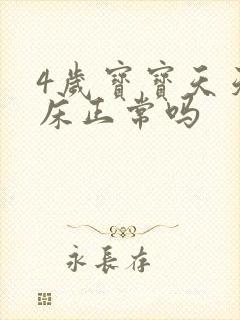 4歲寶寶天
床正常吗
永長存